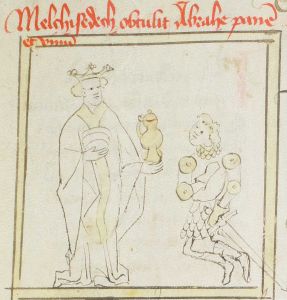 Melchisedech obtulit Abrahe panē
et vinū